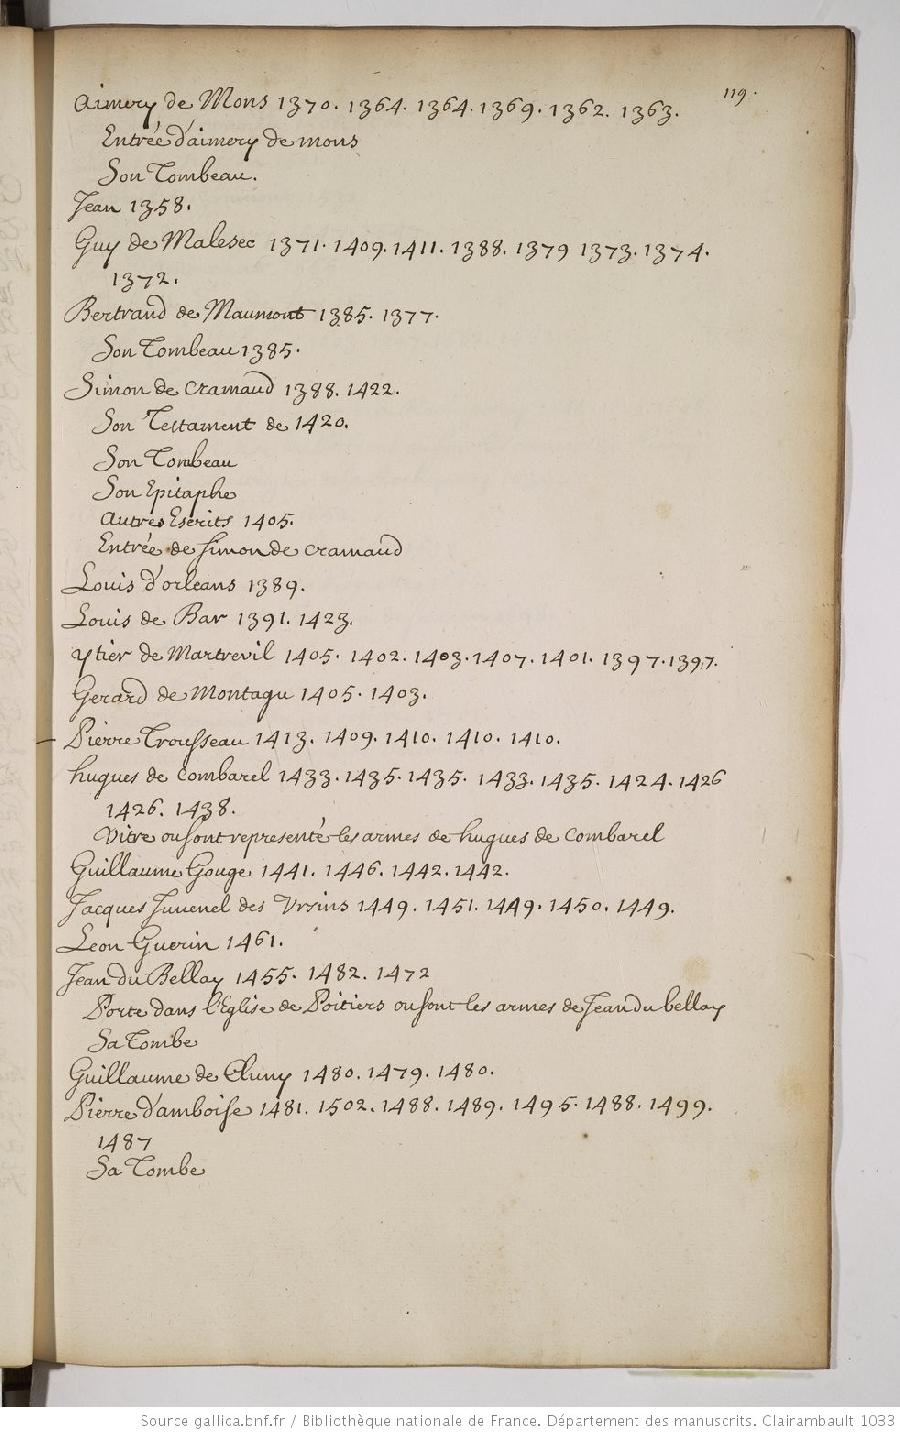 119.
Aimery de Mons 1370. 1364. 1364. 1369. 1362. 1363.
Entrée d'aimery de mons
Son Tombeau.
Jean 1358.
Guy de Malesec 1371. 1409. 1411. 1388. 1379 1373. 1374.
1372.
Bertrand de Maumont 1385. 1377.
Son Tombeau 1385.
Simon de Cramaud 1388. 1422.
Son Testament de 1420.
Son Tombeau
Son Epitaphe
Autres Escrits 1405.
Entrée de Simon de Cramaud
Louis d'orleans 1389.
Louis de Bar 1391. 1423.
ytier de Martrevil 1405. 1402. 1403. 1407. 1401. 1397. 1397.
Gerard de Montagu 1405. 1403.
Pierre Trousseau 1413. 1409. 1410. 1410. 1410.
hugues de Combarel 1433. 1435. 1435. 1433. 1435. 1424. 1426
1426. 1438.
Vitre ou sont representé les armes de hugues de Combarel
Guillaume Gouge 1441. 1446. 1442. 1442.
Jacques Juvenel des Ursins 1449. 1451. 1449. 1450. 1449.
Leon Guerin 1461.
Jean du Bellay 1455. 1482. 1472
Porte dans l'Eglise de Poitiers ou sont les armes de Jean du bellay
Sa Tombe
Guillaume de Cluny 1480. 1479. 1480.
Pierre d'amboise 1481. 1502. 1488. 1489. 1495. 1488. 1499.
1487
Sa Tombe
Source gallica.bnf.fr / Bibliothèque nationale de France. Département des manuscrits. Clairambault 1033